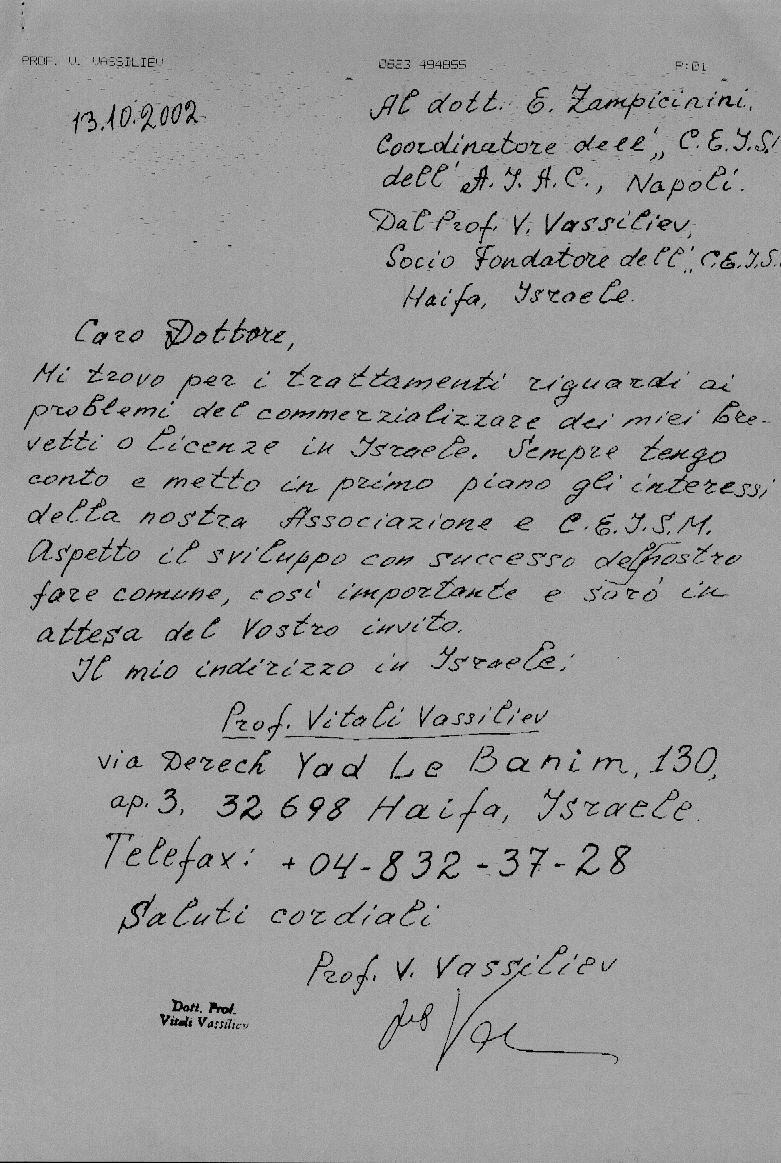 PROF. V. VASSILIEV 0623 494855 P:01
13.10.2002
Al dott. E. Zampicinini.
Coordinatore dell' „C.E.I.S.
dell' A.I.A.C., Napoli.
Dal Prof. V. Vassiliev,
Socio Fondatore dell' „C.E.I.S.
Haifa, Israele.
Caro Dottore,
Mi trovo per i trattamenti riguardi ai
problemi del commerzializzare dei miei bre-
vetti o licenze in Israele. Sempre tengo
conto e metto in primo piano gli interessi
della nostra Associazione e C.E.I.S.M.
Aspetto il sviluppo con successo del nostro
fare comune, così importante e sarò in
attesa del Vostro invito.
Il mio indirizzo in Israele:
Prof. Vitali Vassiliev
via Derech Yad Le Banim, 130,
ap. 3, 32 698 Haifa, Israele.
Telefax: + 04-832-37-28
Saluti cordiali
Prof. V. Vassiliev
Dott. Prof.
Vitali Vassiliev